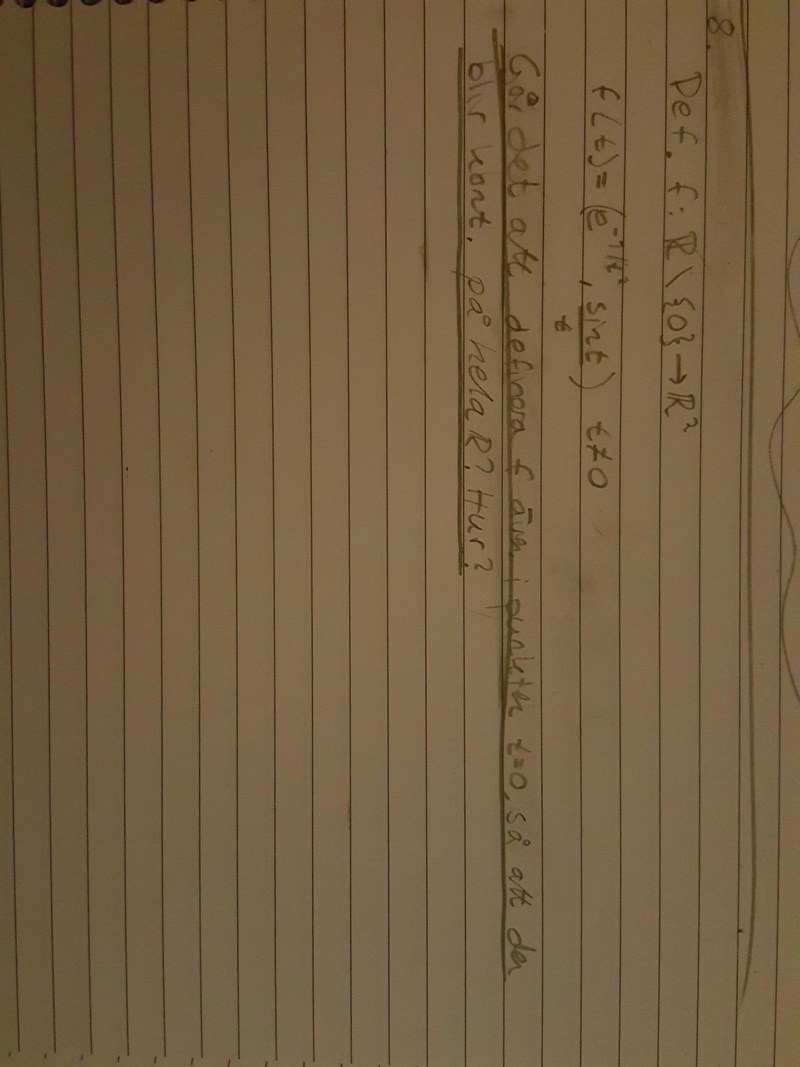 8.
Def. f: ℝ \ {0} → ℝ²
f(t) = (e^{-1/t²}, sint/t) t≠0
Går det att definera f även i punkten t=0, så att den
blir kont. på hela ℝ? Hur?